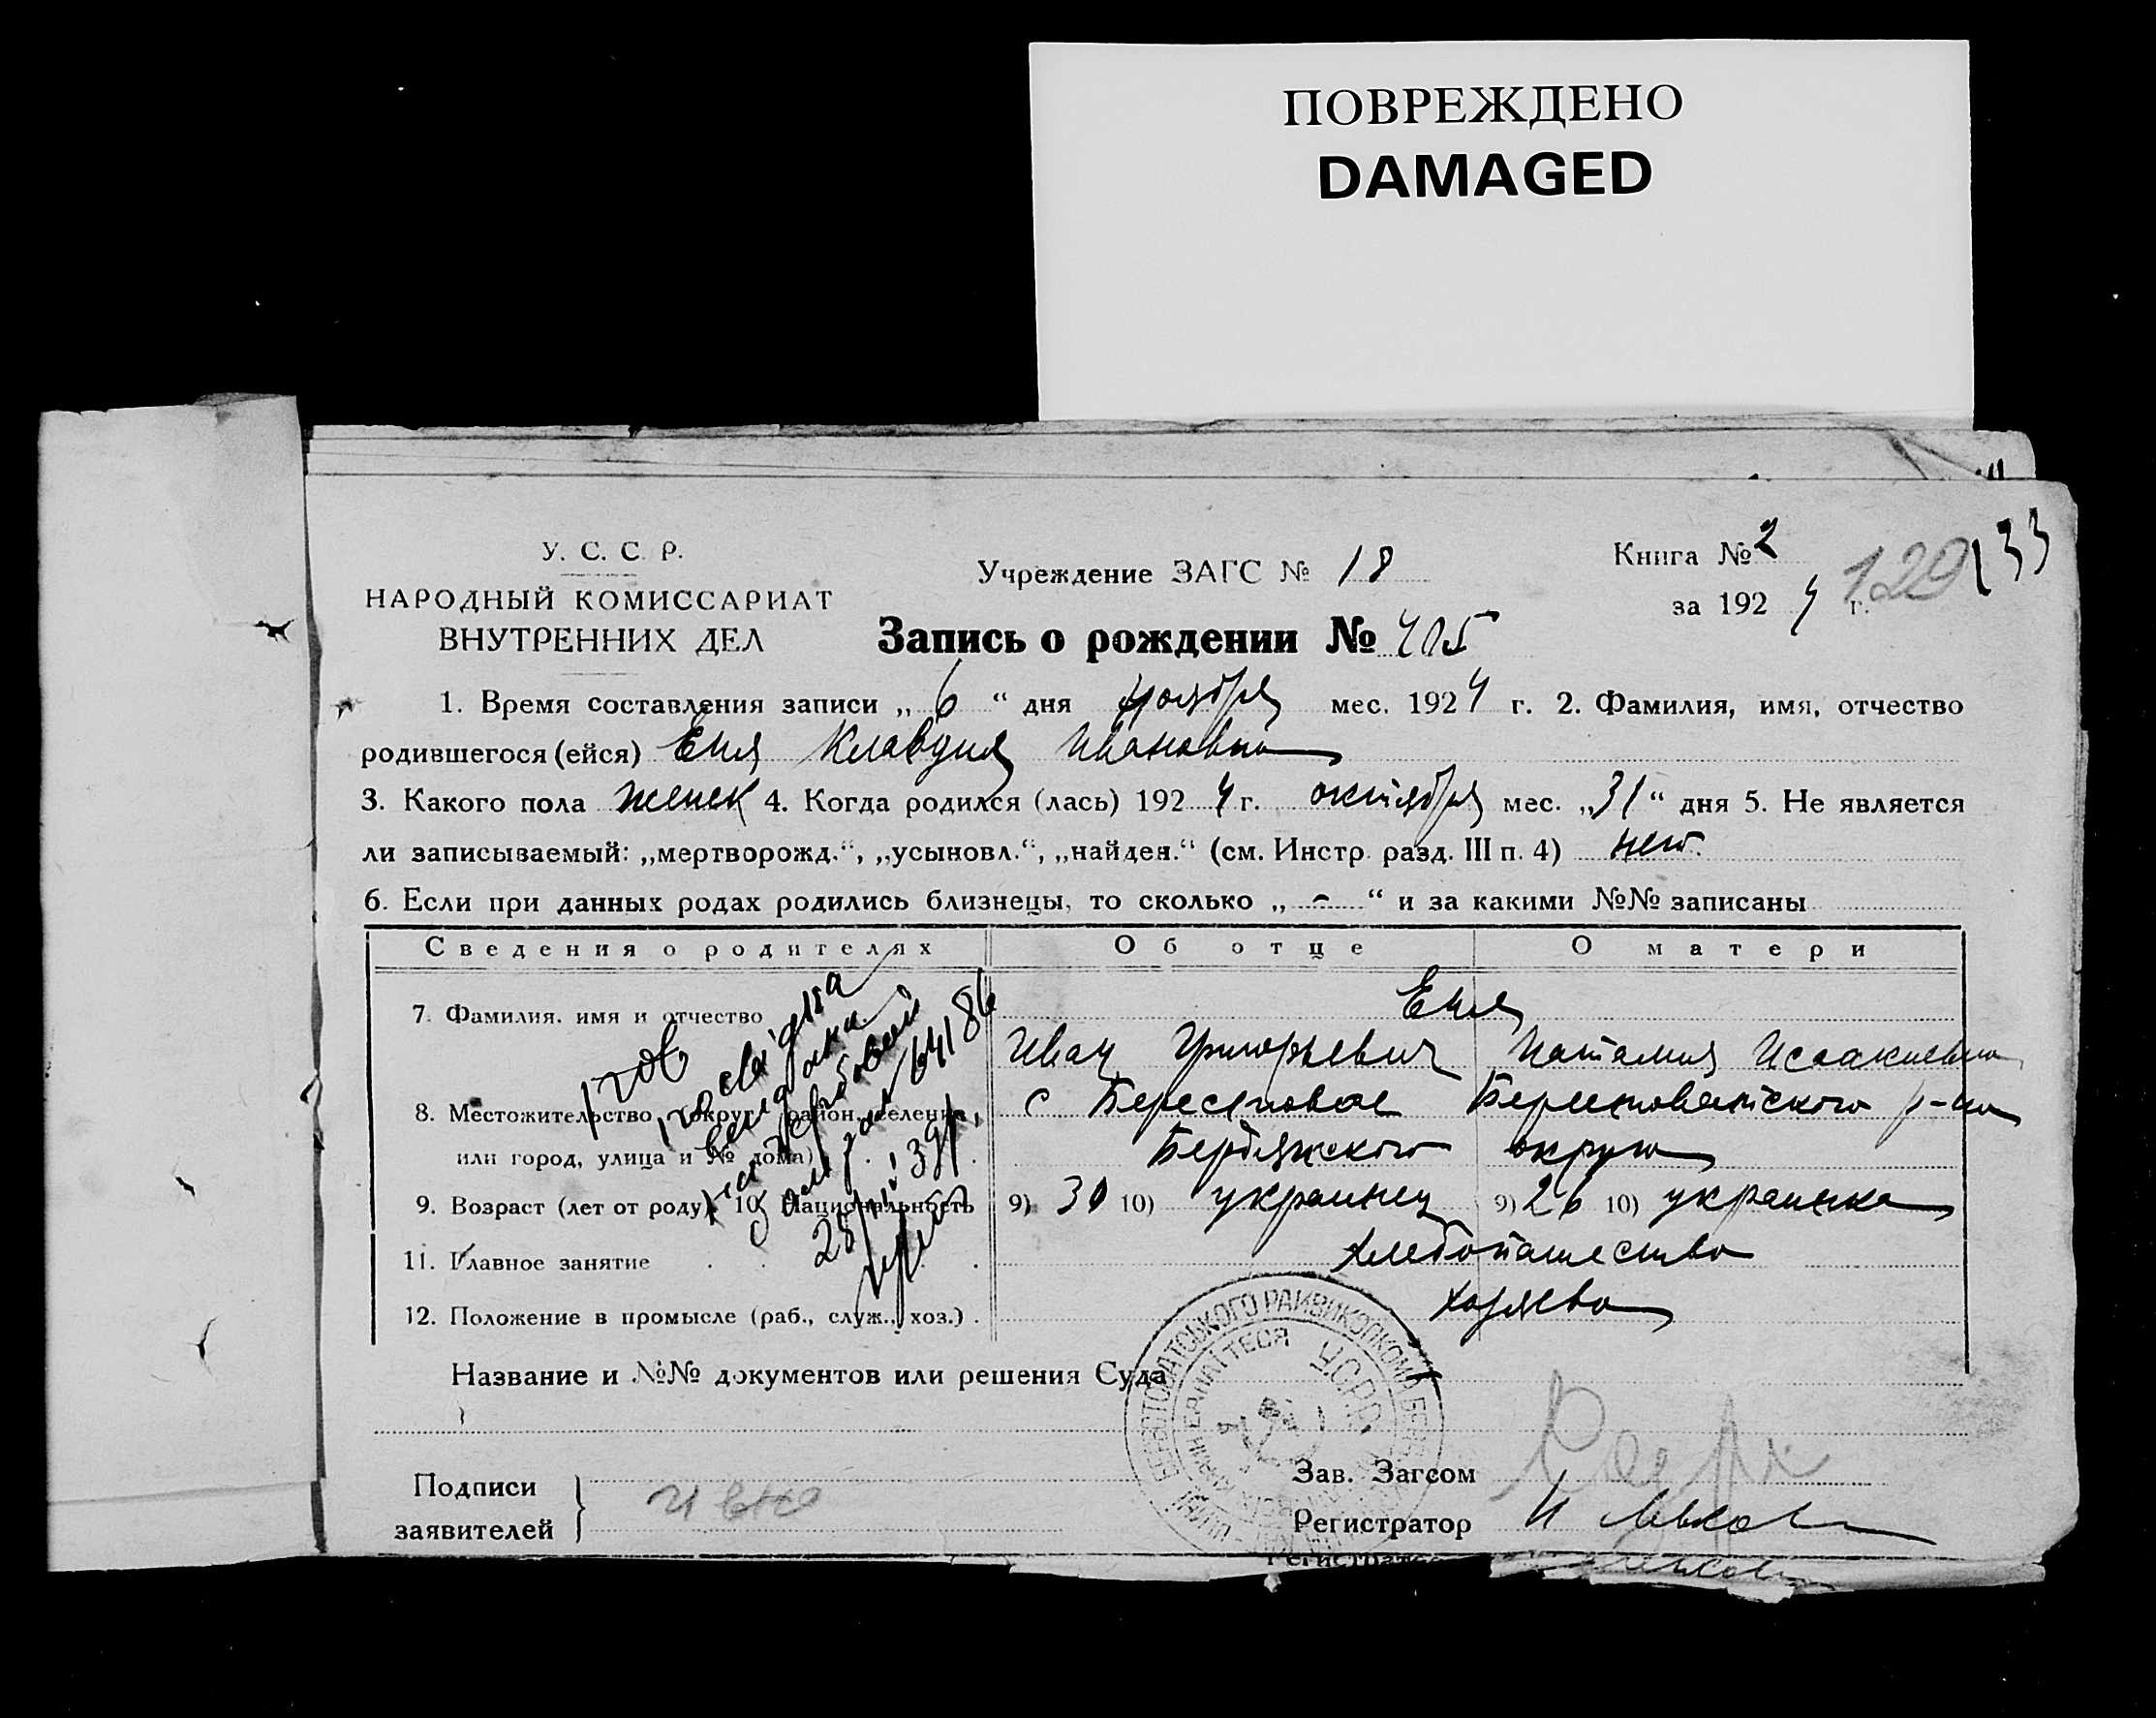 ПОВРЕЖДЕНО
DAMAGED
У. С. С. Р.
НАРОДНЫЙ КОМИССАРИАТ
ВНУТРЕННИХ ДЕЛ
Учреждение ЗАГС № 18
Книга № 2
129 133
за 1924 г.
Запись о рождении № 405
1. Время составления записи „ 6 “ дня ноября мес. 1924 г. 2. Фамилия, имя, отчество
родившегося (ейся) Еня Клавдия Ивановна
3. Какого пола женск 4. Когда родился (лась) 1924 г. октября мес. „31“ дня 5. Не является
ли записываемый: „мертворожд.“, „усыновл.“, „найден.“ (см. Инстр. разд. III п. 4) нет.
6. Если при данных родах родились близнецы, то сколько „ - “ и за какими №№ записаны
Сведения о родителях Об отце О матери
7. Фамилия, имя и отчество Еня
Иван Григорьевич Наталия Исаакиевна
8. Местожительство (округ, район, селение с Берестовое Берестоватского р-на
или город, улица и № дома) Бердянского округа
9. Возраст (лет от роду) 10. Национальность 9) 30 10) украинец 9) 26 10) украинка
11. Главное занятие хлебопашество
12. Положение в промысле (раб., служ., хоз.) хозяева
64186
Название и №№ документов или решения Суда
УСРР
Подписи
заявителей
Зав. Загсом
Регистратор